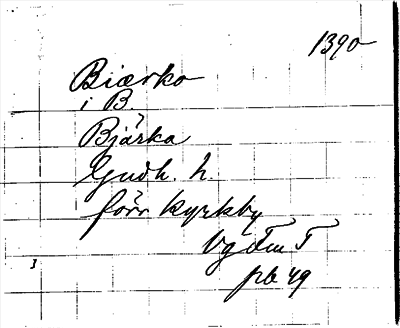 1390
Biærko
i B.
Bjärka
Gudh. h.
förr kyrkby
Vg Fm T
pb 49
3